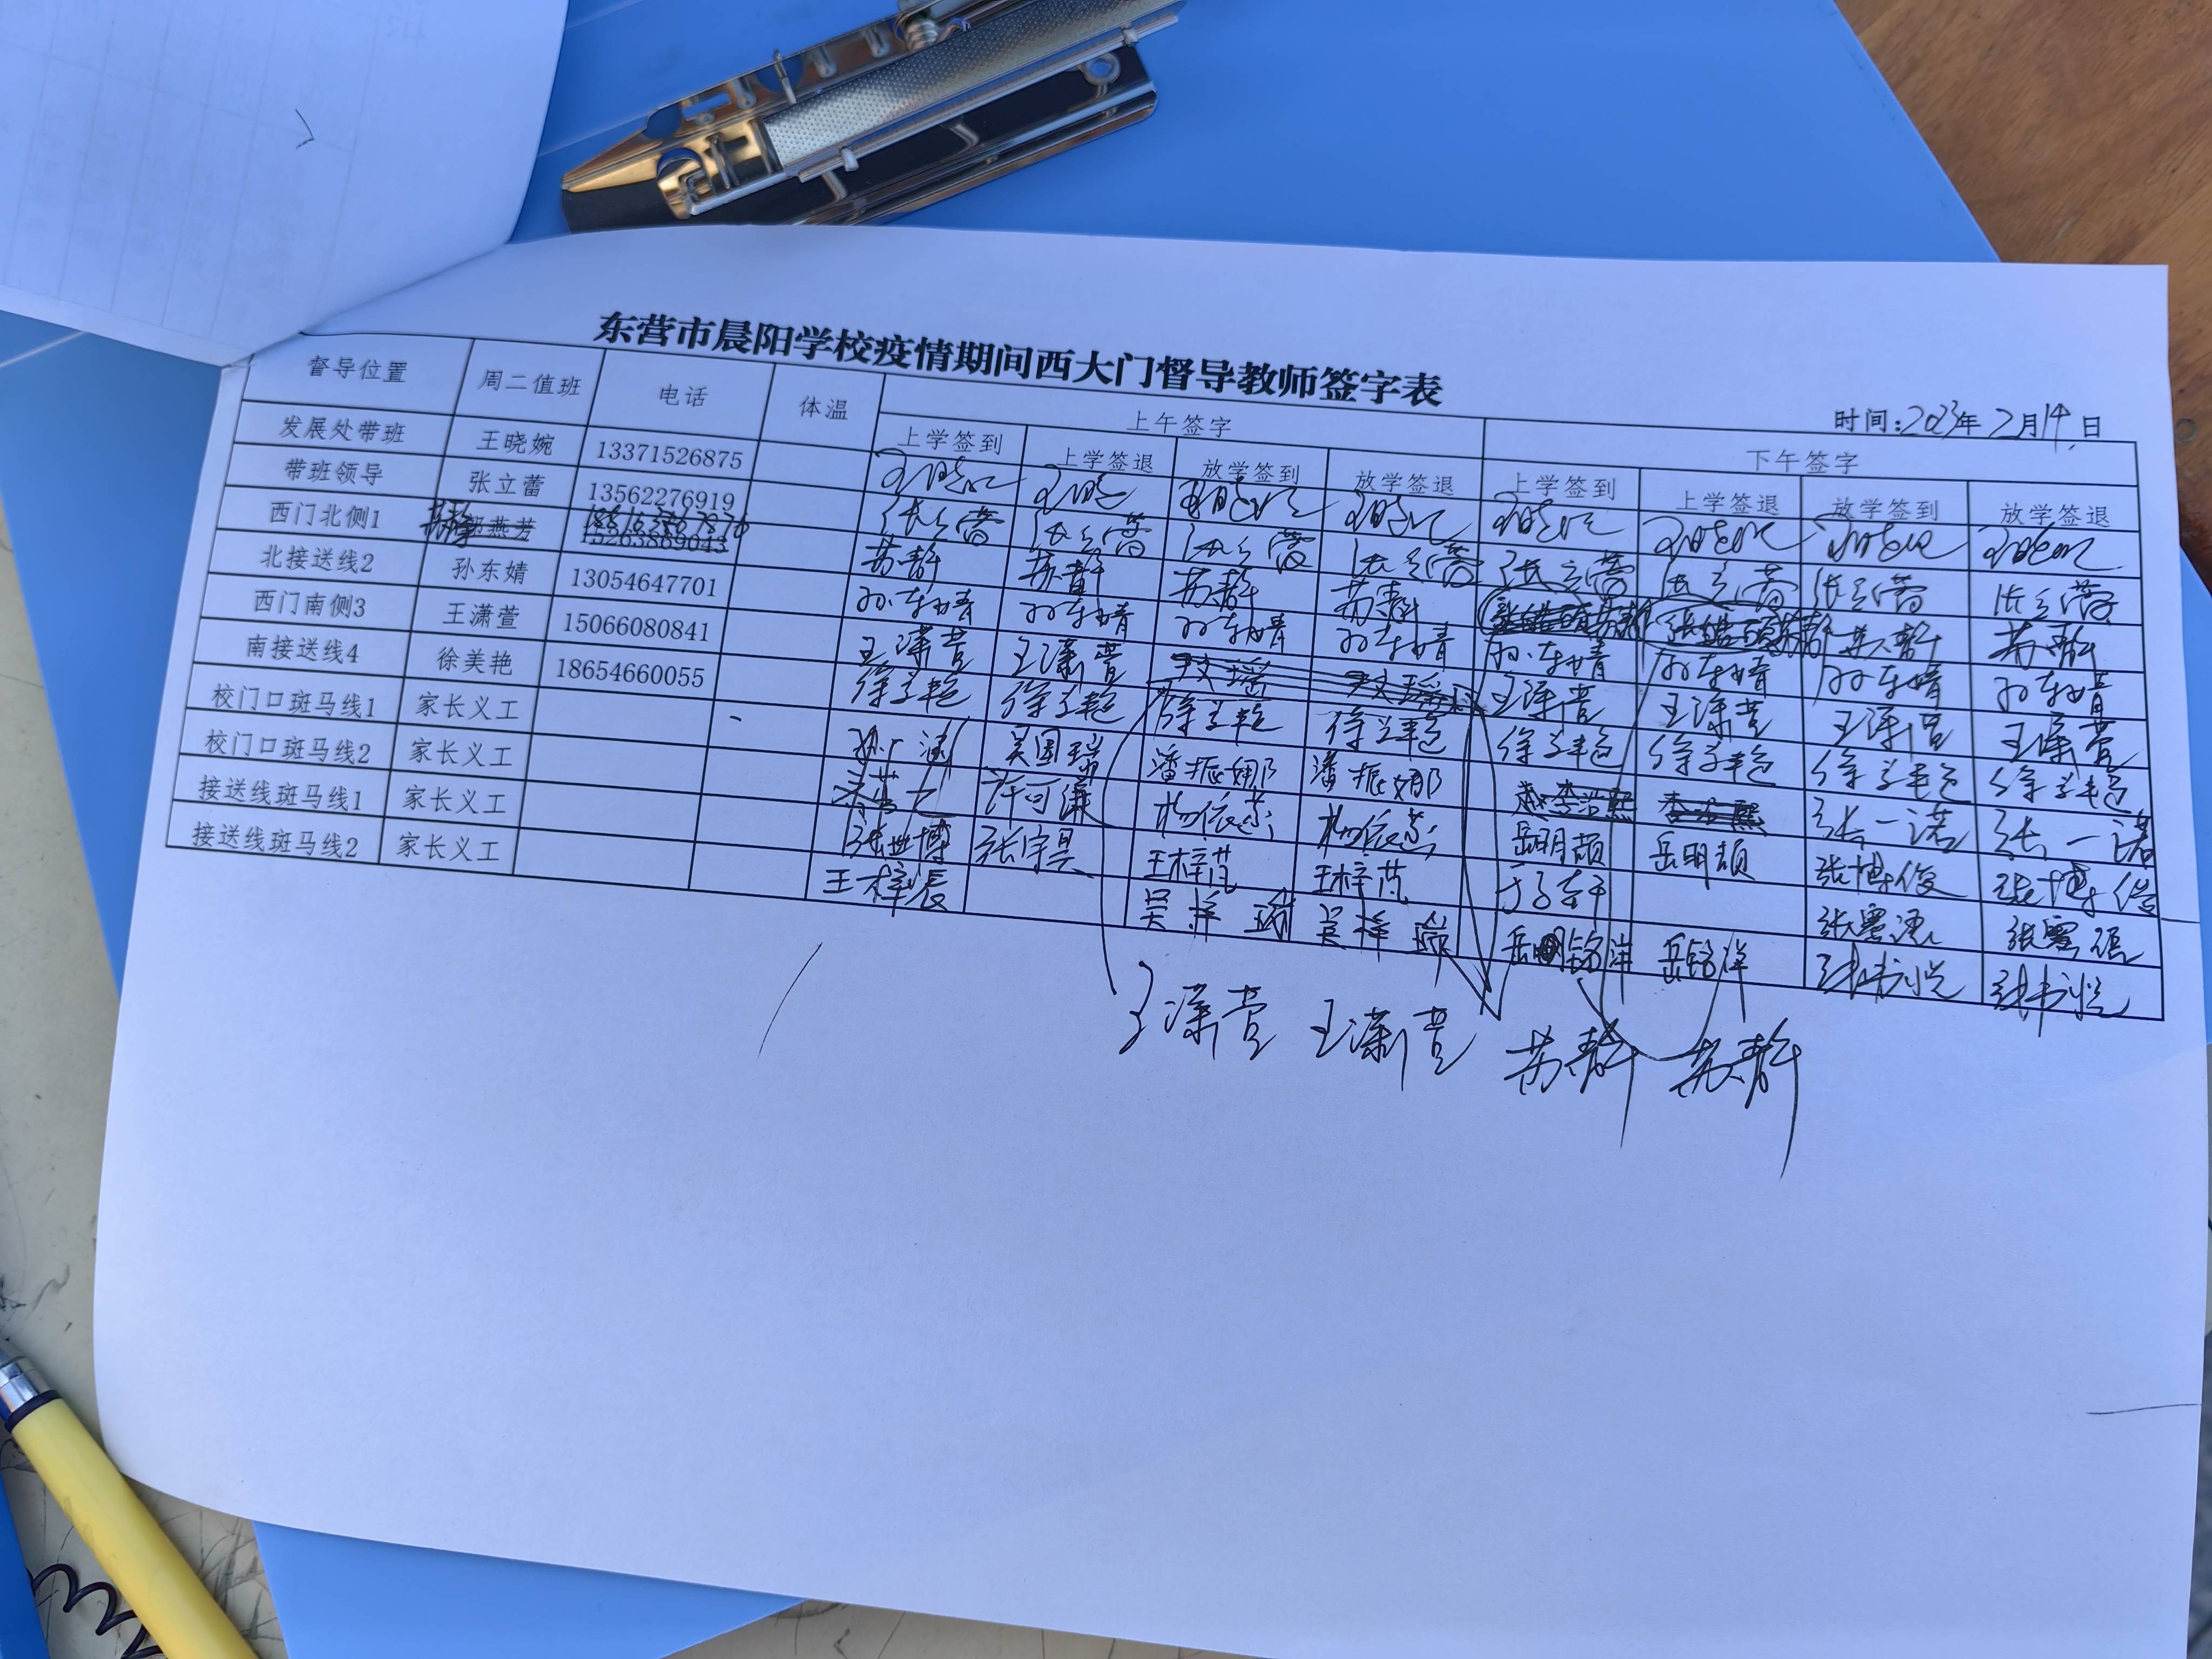 东营市晨阳学校疫情期间西大门督导教师签字表
时间:2023年2月14日
督导位置 周二值班 电话 体温 上午签字 下午签字
上学签到 上学签退 放学签到 放学签退 上学签到 上学签退 放学签到 放学签退
发展处带班 王晓婉 13371526875 王晓婉 王晓婉 王晓婉 王晓婉 王晓婉 王晓婉 王晓婉 王晓婉
带班领导 张立蕾 13562276919 张立蕾 张立蕾 张立蕾 张立蕾 张立蕾 张立蕾 张立蕾 张立蕾
西门北侧1 苏静 燕芳 15263869043 苏静 苏静 苏静 苏静 苏静 苏静 苏静 苏静
北接送线2 孙东婧 13054647701 孙东婧 孙东婧 孙东婧 孙东婧 孙东婧 孙东婧 孙东婧 孙东婧
西门南侧3 王潇萱 15066080841 王潇萱 王潇萱 王潇萱 王潇萱 王潇萱 王潇萱
南接送线4 徐美艳 18654660055 徐美艳 徐美艳 徐美艳 徐美艳 徐美艳 徐美艳 徐美艳 徐美艳
校门口斑马线1 家长义工 吴国瑞 潘振娜 潘振娜 李浩熙 李浩熙 张一诺 张一诺
校门口斑马线2 家长义工 许可 杨依蕊 杨依蕊 岳明颉 岳明颉 张博俊 张博俊
接送线斑马线1 家长义工 张世博 张宇昊 王梓芃 王梓芃 于子
接送线斑马线2 家长义工 王梓辰 吴梓 吴梓 岳铭洋 岳铭洋
王潇萱 王潇萱 苏静 苏静